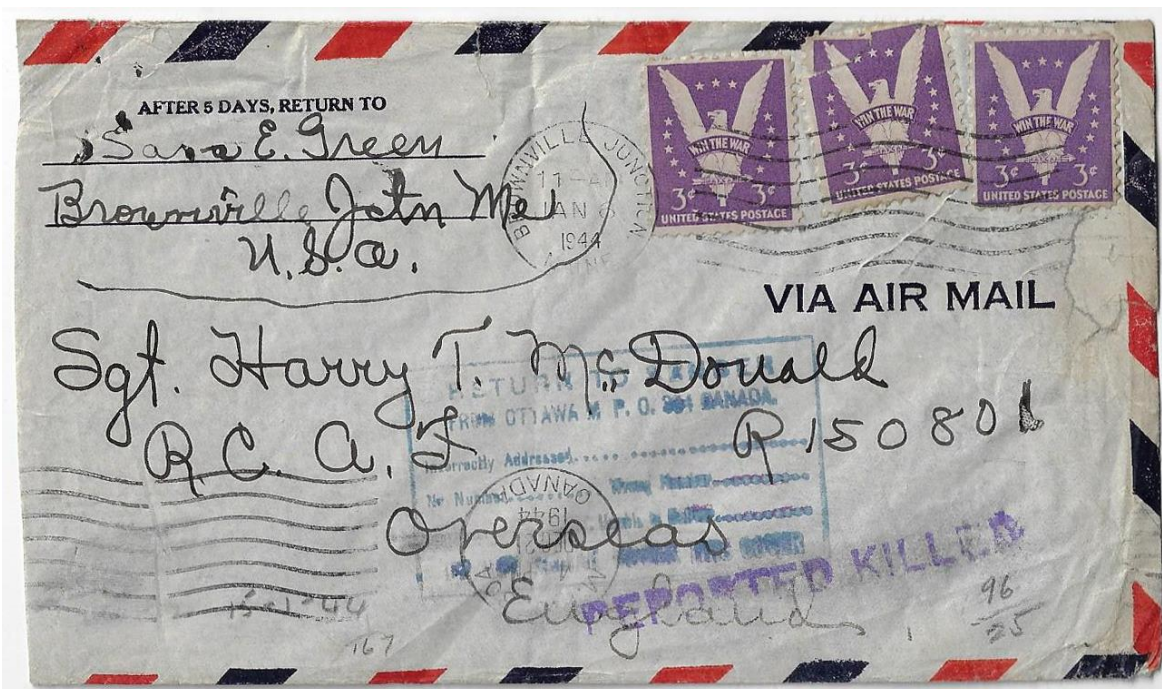 AFTER 5 DAYS, RETURN TO
Sara E. Green
Brownville Jctn Me
U.S.a.
BROWNVILLE JUNCTION
11 AM
JAN 6
1944
MAINE
WIN THE WAR
3¢ 3¢
UNITED STATES POSTAGE
WIN THE WAR
3¢ 3¢
UNITED STATES POSTAGE
WIN THE WAR
3¢ 3¢
UNITED STATES POSTAGE
VIA AIR MAIL
Sgt. Harry T. McDonald
R.C.A.F R150801
Overseas
England
RETURN TO SENDER
FROM OTTAWA M P. O. CANADA.
Incorrectly Addressed
No Number
CANADA
1944
REPORTED KILLED
167
96
25